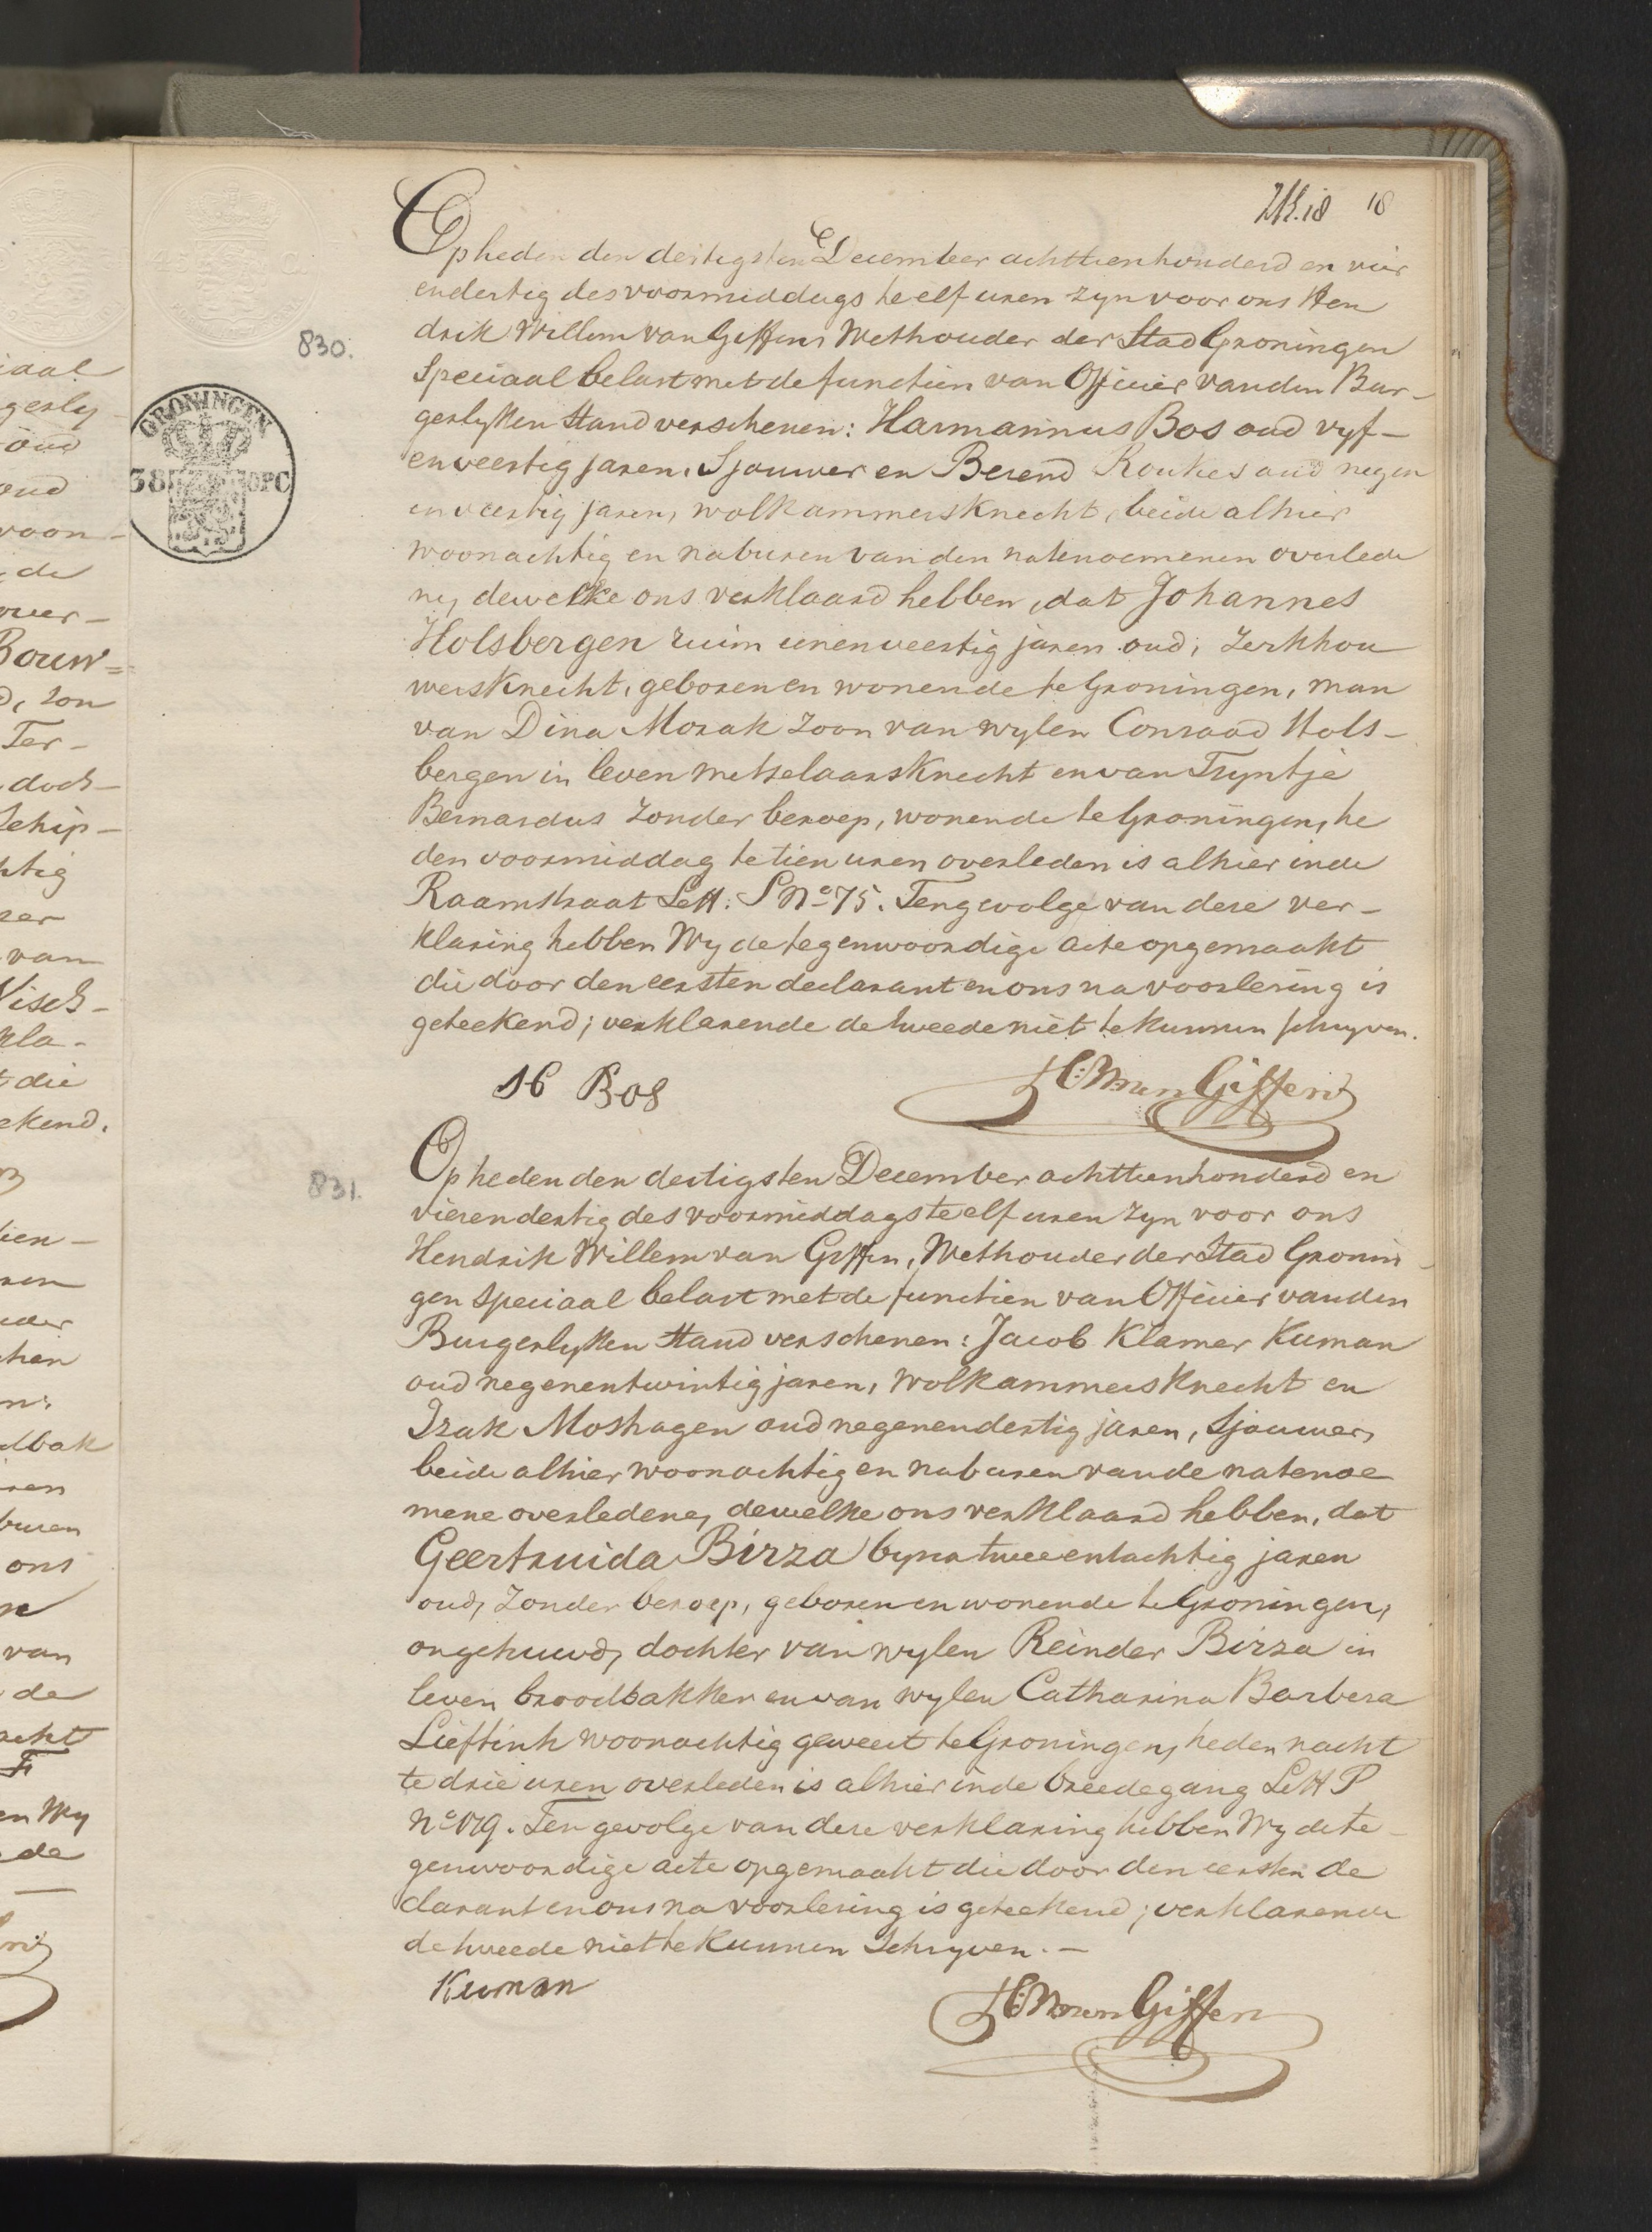 18
830.
GRONINGEN
38
OPC
Op heden den dertigsten December achttienhonderd en vier
endertig des voormiddags te elf uren zyn voor ons Hen
drik Willem van Giffen, Wethouder der Stad Groningen
Speciaal belast met de functien van Officier van den Bur-
gerlyken Stand verschenen: Harmannus Bos oud vyf-
enveertig jaren, Sjouwer en Berend Roukes oud negen
enveertig jaren, wolkammersknecht, beide alhier
woonachtig en naburen van den natenoemenen overlede
ne, dewelke ons verklaard hebben, dat Johannes
Holsbergen ruim eenenveertig jaren oud, Zerkhou
wersknecht, geboren en wonende te Groningen, man
van Dina Morak zoon van wylen Conraad Hols-
bergen in leven metzelaarsknecht en van Tryntje
Bernardus zonder beroep, wonende te Groningen, he
den voormiddag te tien uren overleden is alhier in de
Raamstraat Lett: S No 75. Tengevolge van deze ver-
klaring hebben Wy de tegenwoordige acte opgemaakt
die door den eersten declarant en ons na voorlezing is
geteekend; verklarende de tweede niet te kunnen schryven.
H Bos
HWvanGiffen
831.
Op heden den dertigsten December achttienhonderd en
vierendertig des voormiddags te elf uren zyn voor ons
Hendrik Willem van Giffen, Wethouder der Stad Gronin-
gen Speciaal belast met de functien van Officier van den
Burgerlyken Stand verschenen: Jacob Klamer Kuman
oud negenentwintig jaren, wolkammersknecht en
Izak Moshagen oud negenendertig jaren, Sjouwer,
beide alhier woonachtig en naburen van de natenoe
mene overledene, dewelke ons verklaard hebben, dat
Geertruida Birza byna tweeentachtig jaren
oud, zonder beroep, geboren en wonende te Groningen,
ongehuwd, dochter van wylen Reinder Birza in
leven broodbakker en van wylen Catharina Barbera
Lieftink woonachtig geweest te Groningen, heden nacht
te drie uren overleden is alhier in de breedegang Lett P
No 179. Ten gevolge van deze verklaring hebben Wy de te-
genwoordige acte opgemaakt die door den eersten de
clarant en ons na voorlezing is geteekend; verklarende
de tweede niet te kunnen Schryven. -
Kuman
HWvanGiffen